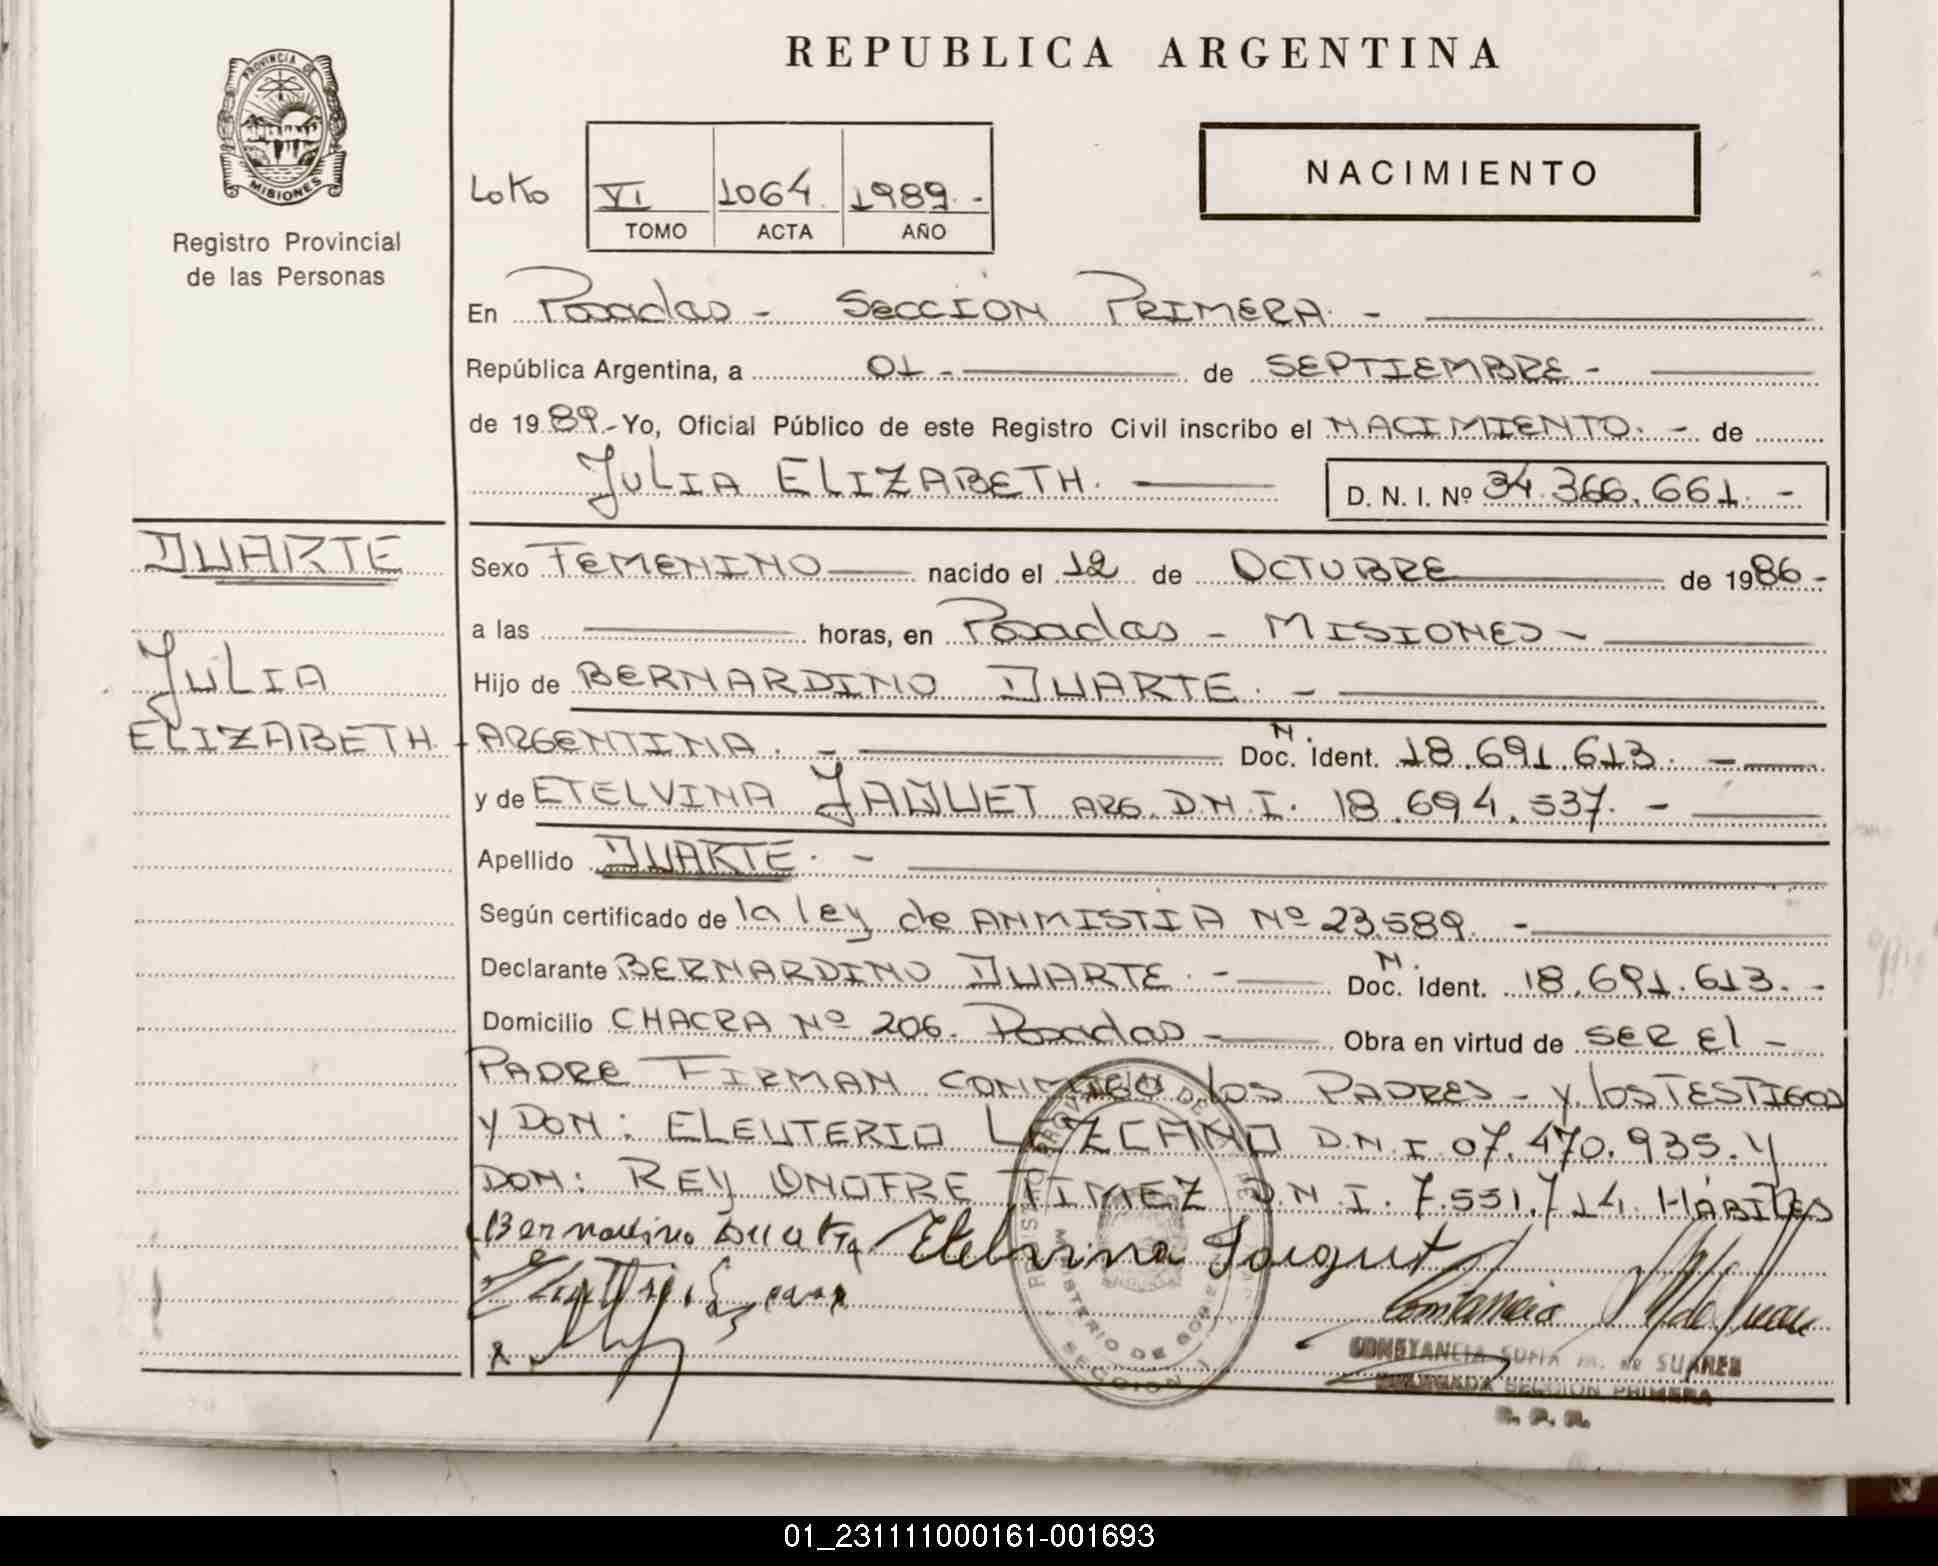 REPUBLICA ARGENTINA
PROVINCIA DE
MISIONES
Registro Provincial
de las Personas
NACIMIENTO
VI 1064. 1989.-
TOMO ACTA AÑO
En Posadas - SeccION PRIMERA. -
República Argentina, a 01.- de SEPTIEMBRE -
de 1989.- Yo, Oficial Público de este Registro Civil inscribo el NACIMIENTO. - de
JULIA ELIZABETH.
D. N. I. Nº 34.366.661. -
DUARTE
JULIA
ELIZABETH.
Sexo FEMENINO nacido el 12 de OCTUBRE de 1986-
a las horas, en Posadas - MISIONES -
Hijo de BERNARDINO DUARTE. -
- ARGENTINA. - Doc. Ident. 18.691.613. -
y de ETELVINA JAQUET ARG. D.N.I. 18.694.537. -
Apellido DUARTE. -
Según certificado de la ley de ANMISTIA Nº 23.589. -
Declarante BERNARDINO DUARTE. - Doc. Ident. 18.691.613. -
Domicilio CHACRA Nº 206. Posadas - Obra en virtud de SER El -
PADRE FIRMAN CONMIGO los PADRES - y los TESTIGOS
y DON: ELEUTERIO LEZCANO D.N.I 07.470.935. y
DON: REY ONOFRE D.N.I. 7.531.714. HÁBILES
Bernardino Duarte Etelvina Jaquet
CONSTANCIA SOFIA M. de SUAREZ
SECCION PRIMERA
R. P. P.
MINISTERIO DE GOBIE
SECCION 1
01_231111000161-001693